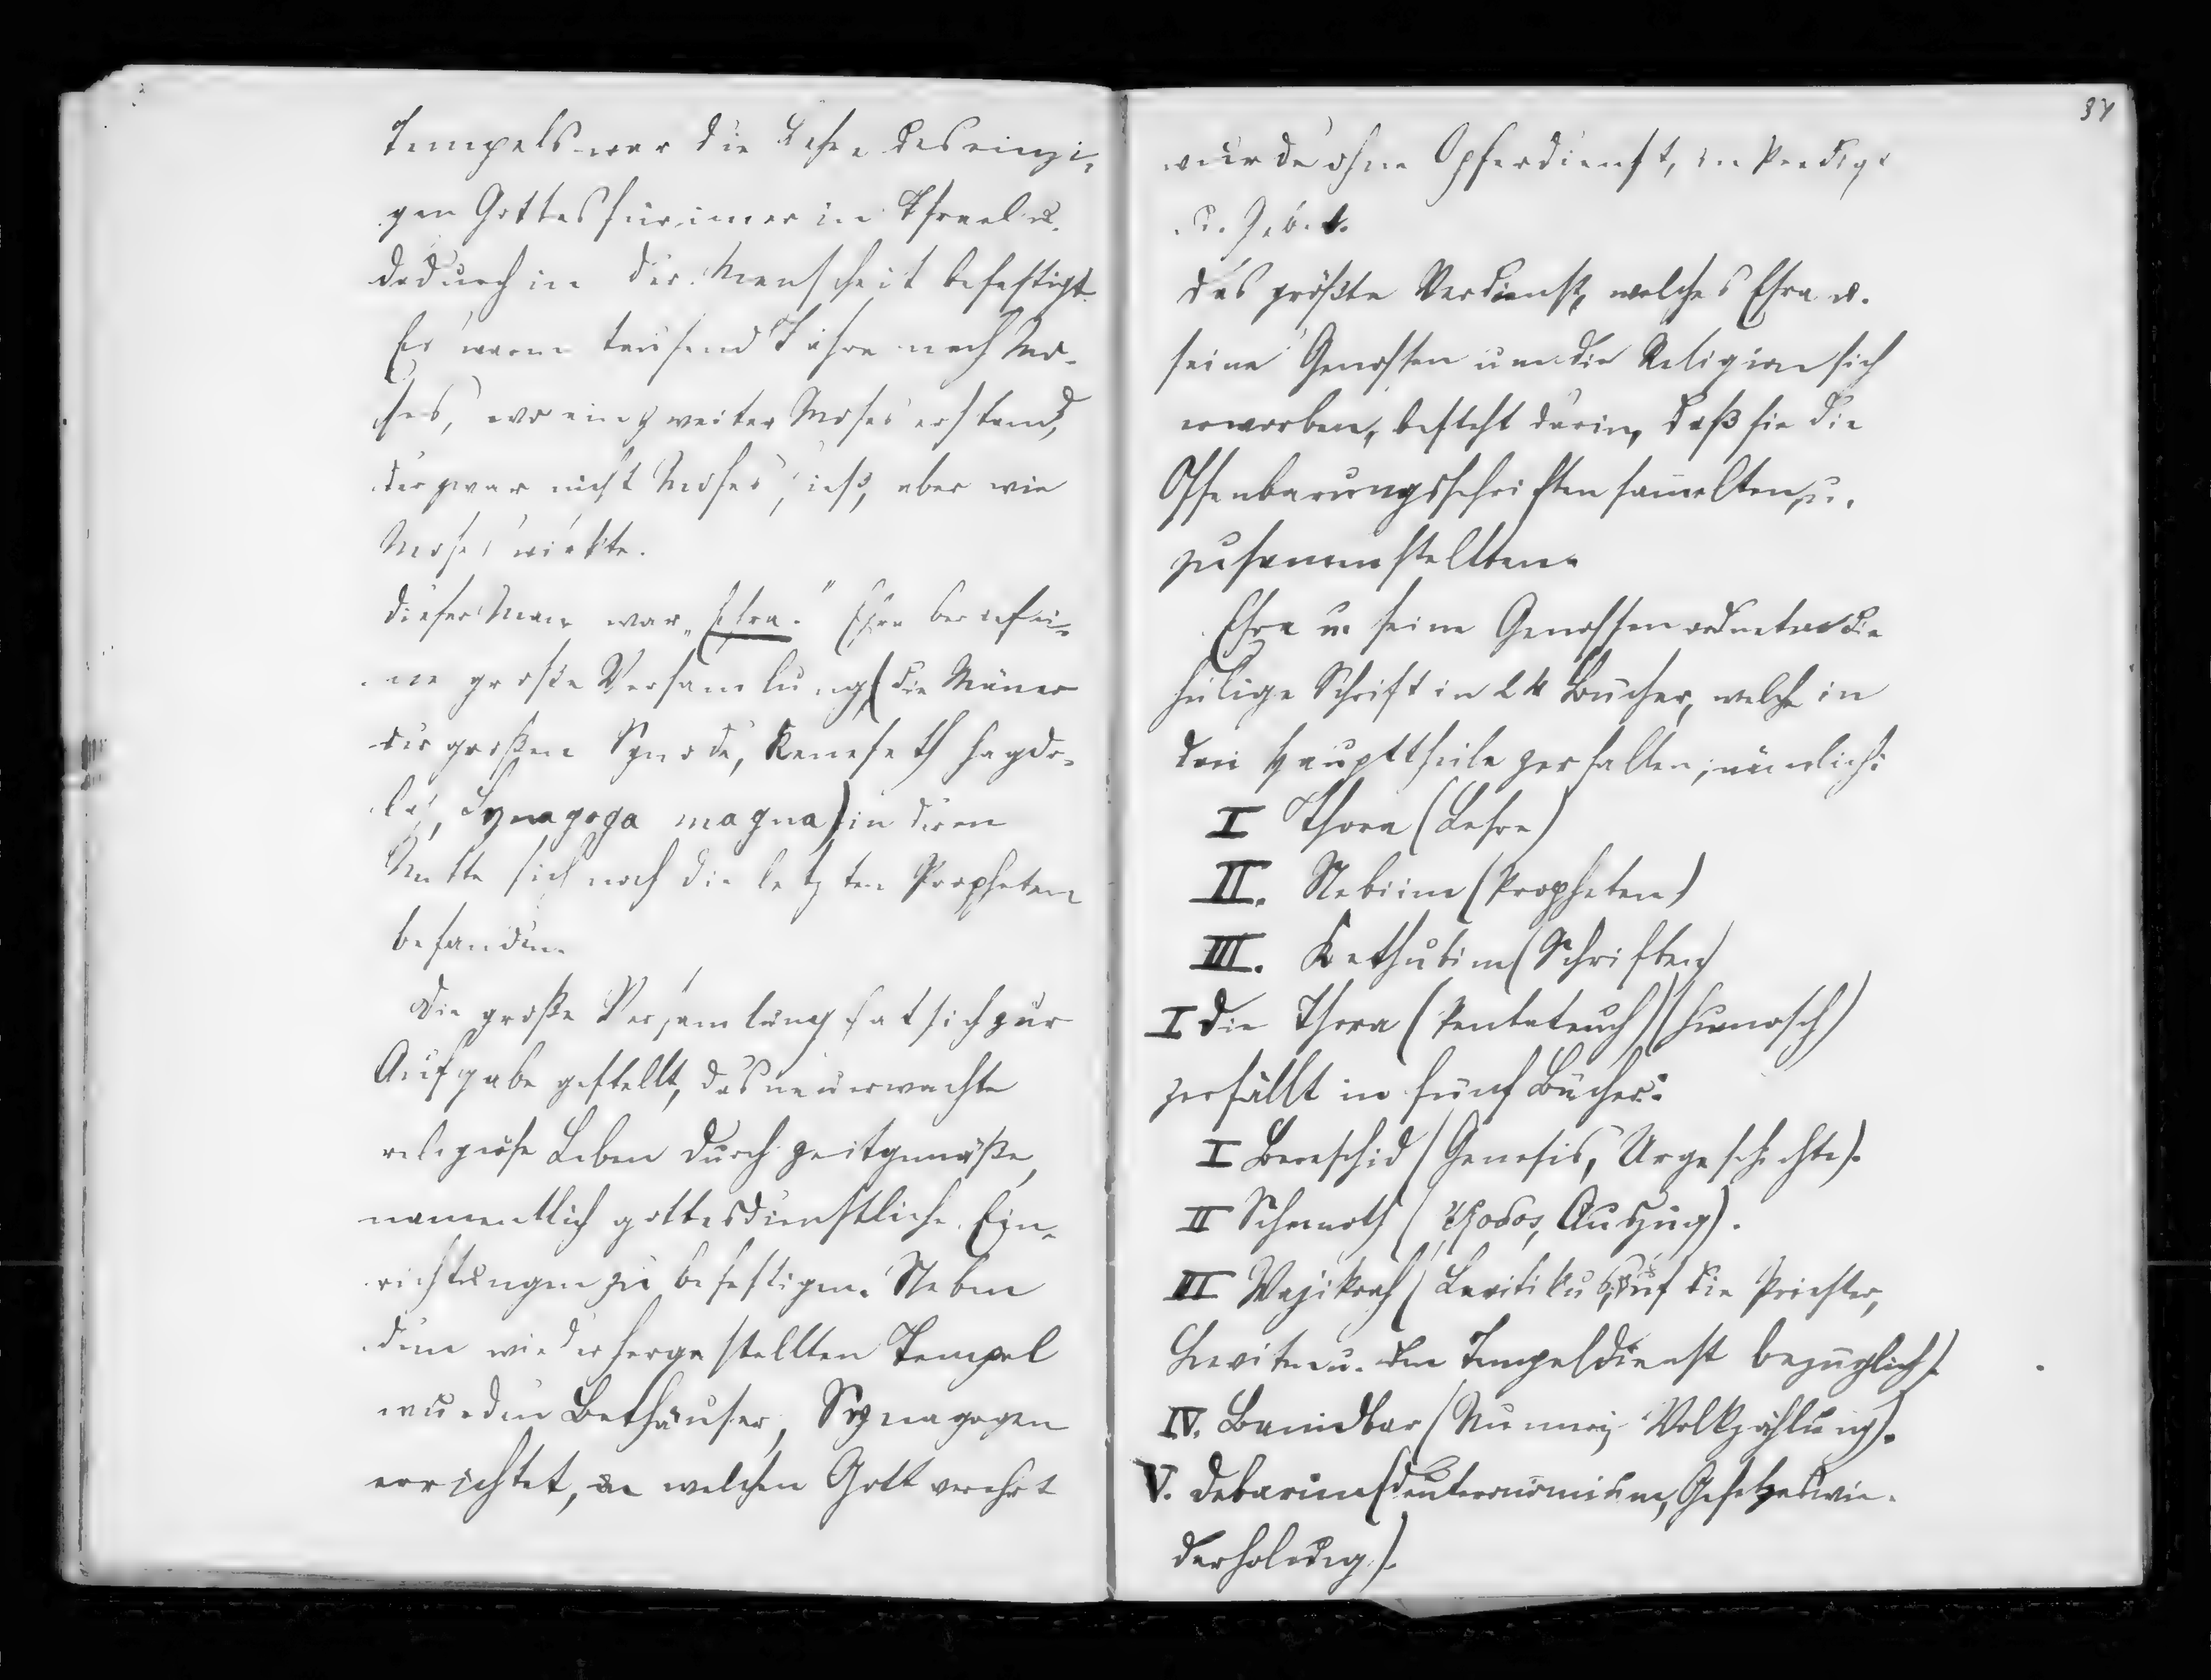 Tempels war die Lehre des einzi-
gen Gottes für imer in Israel u.
dadurch in der Menschheit befestigt.
Es waren tausend Jahre nach Mo-
ses, wo ein zweiter Moses erstand,
der zwar nicht Moses hieß, aber wie
Moses wirkte.
Dieser Man war „Esra." Esra berief ei-
ne große Versamlung (die Mäner
der großen Synode, Keneseth hagdo-
la, Synagoga magna) in deren
Mitte sich noch die letzten Propheten
befanden.
Die große Versamlung hat sich zur
Aufgabe gestellt, das neuerwachte
religiöse Leben durch zeitgemäße,
namentlich gottesdienstliche Ein-
richtungen zu befestigen. Neben
dem wiederhergestellten Tempel
wurden Bethäuser, Synagogen
errichtet, in welchen Gott verehrt
37
wurde ohne Opferdienst, in Predigt
u. Gebet.
Das größte Verdienst, welches Esra u.
seine Genossen um die Religion sich
erworben, besteht darin, daß sie die
Offenbarungsschriften samelten u.
zusamenstellten.
Esra u. seine Genossen ordneten die
heilige Schrift in 24 Bücher, welche in
drei Haupttheile zerfallen, nämlich:
I Thora (Lehre)
II. Nebiim (Propheten)
III. Kethubim (Schriften)
I Die Thora (Pentateuch) (Humosch)
zerfällt in fünf Bücher:
I Bereschid (Genesis, Urgeschichte).
II Schemoth (Exodos, Auszug).
III Wajikrah (Levitikus, auf die Priester,
Leviten u. den Tempeldienst bezüglich).
IV. Bamidbar (Numeri, Volkzählung).
V. Debarim (Deuteronomium, Gesetzeswie-
derholung).